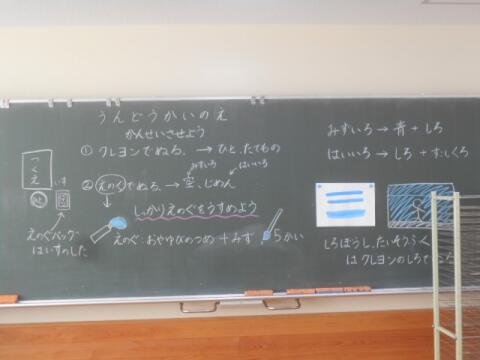 うんどうかいのえ
かんせいさせよう
① クレヨンでぬる。→ひと、たてもの
みずいろ
はいいろ
② えのぐでぬる。→空、じめん
しっかりえのぐをうすめよう
えのぐ:おやゆびのつめ+みず 5かい
つくえ
いす
えのぐバッグ
はいすのした
みずいろ→青+しろ
はいいろ→しろ+すこしくろ
しろぼうし、たいそうふく
はクレヨンのしろで